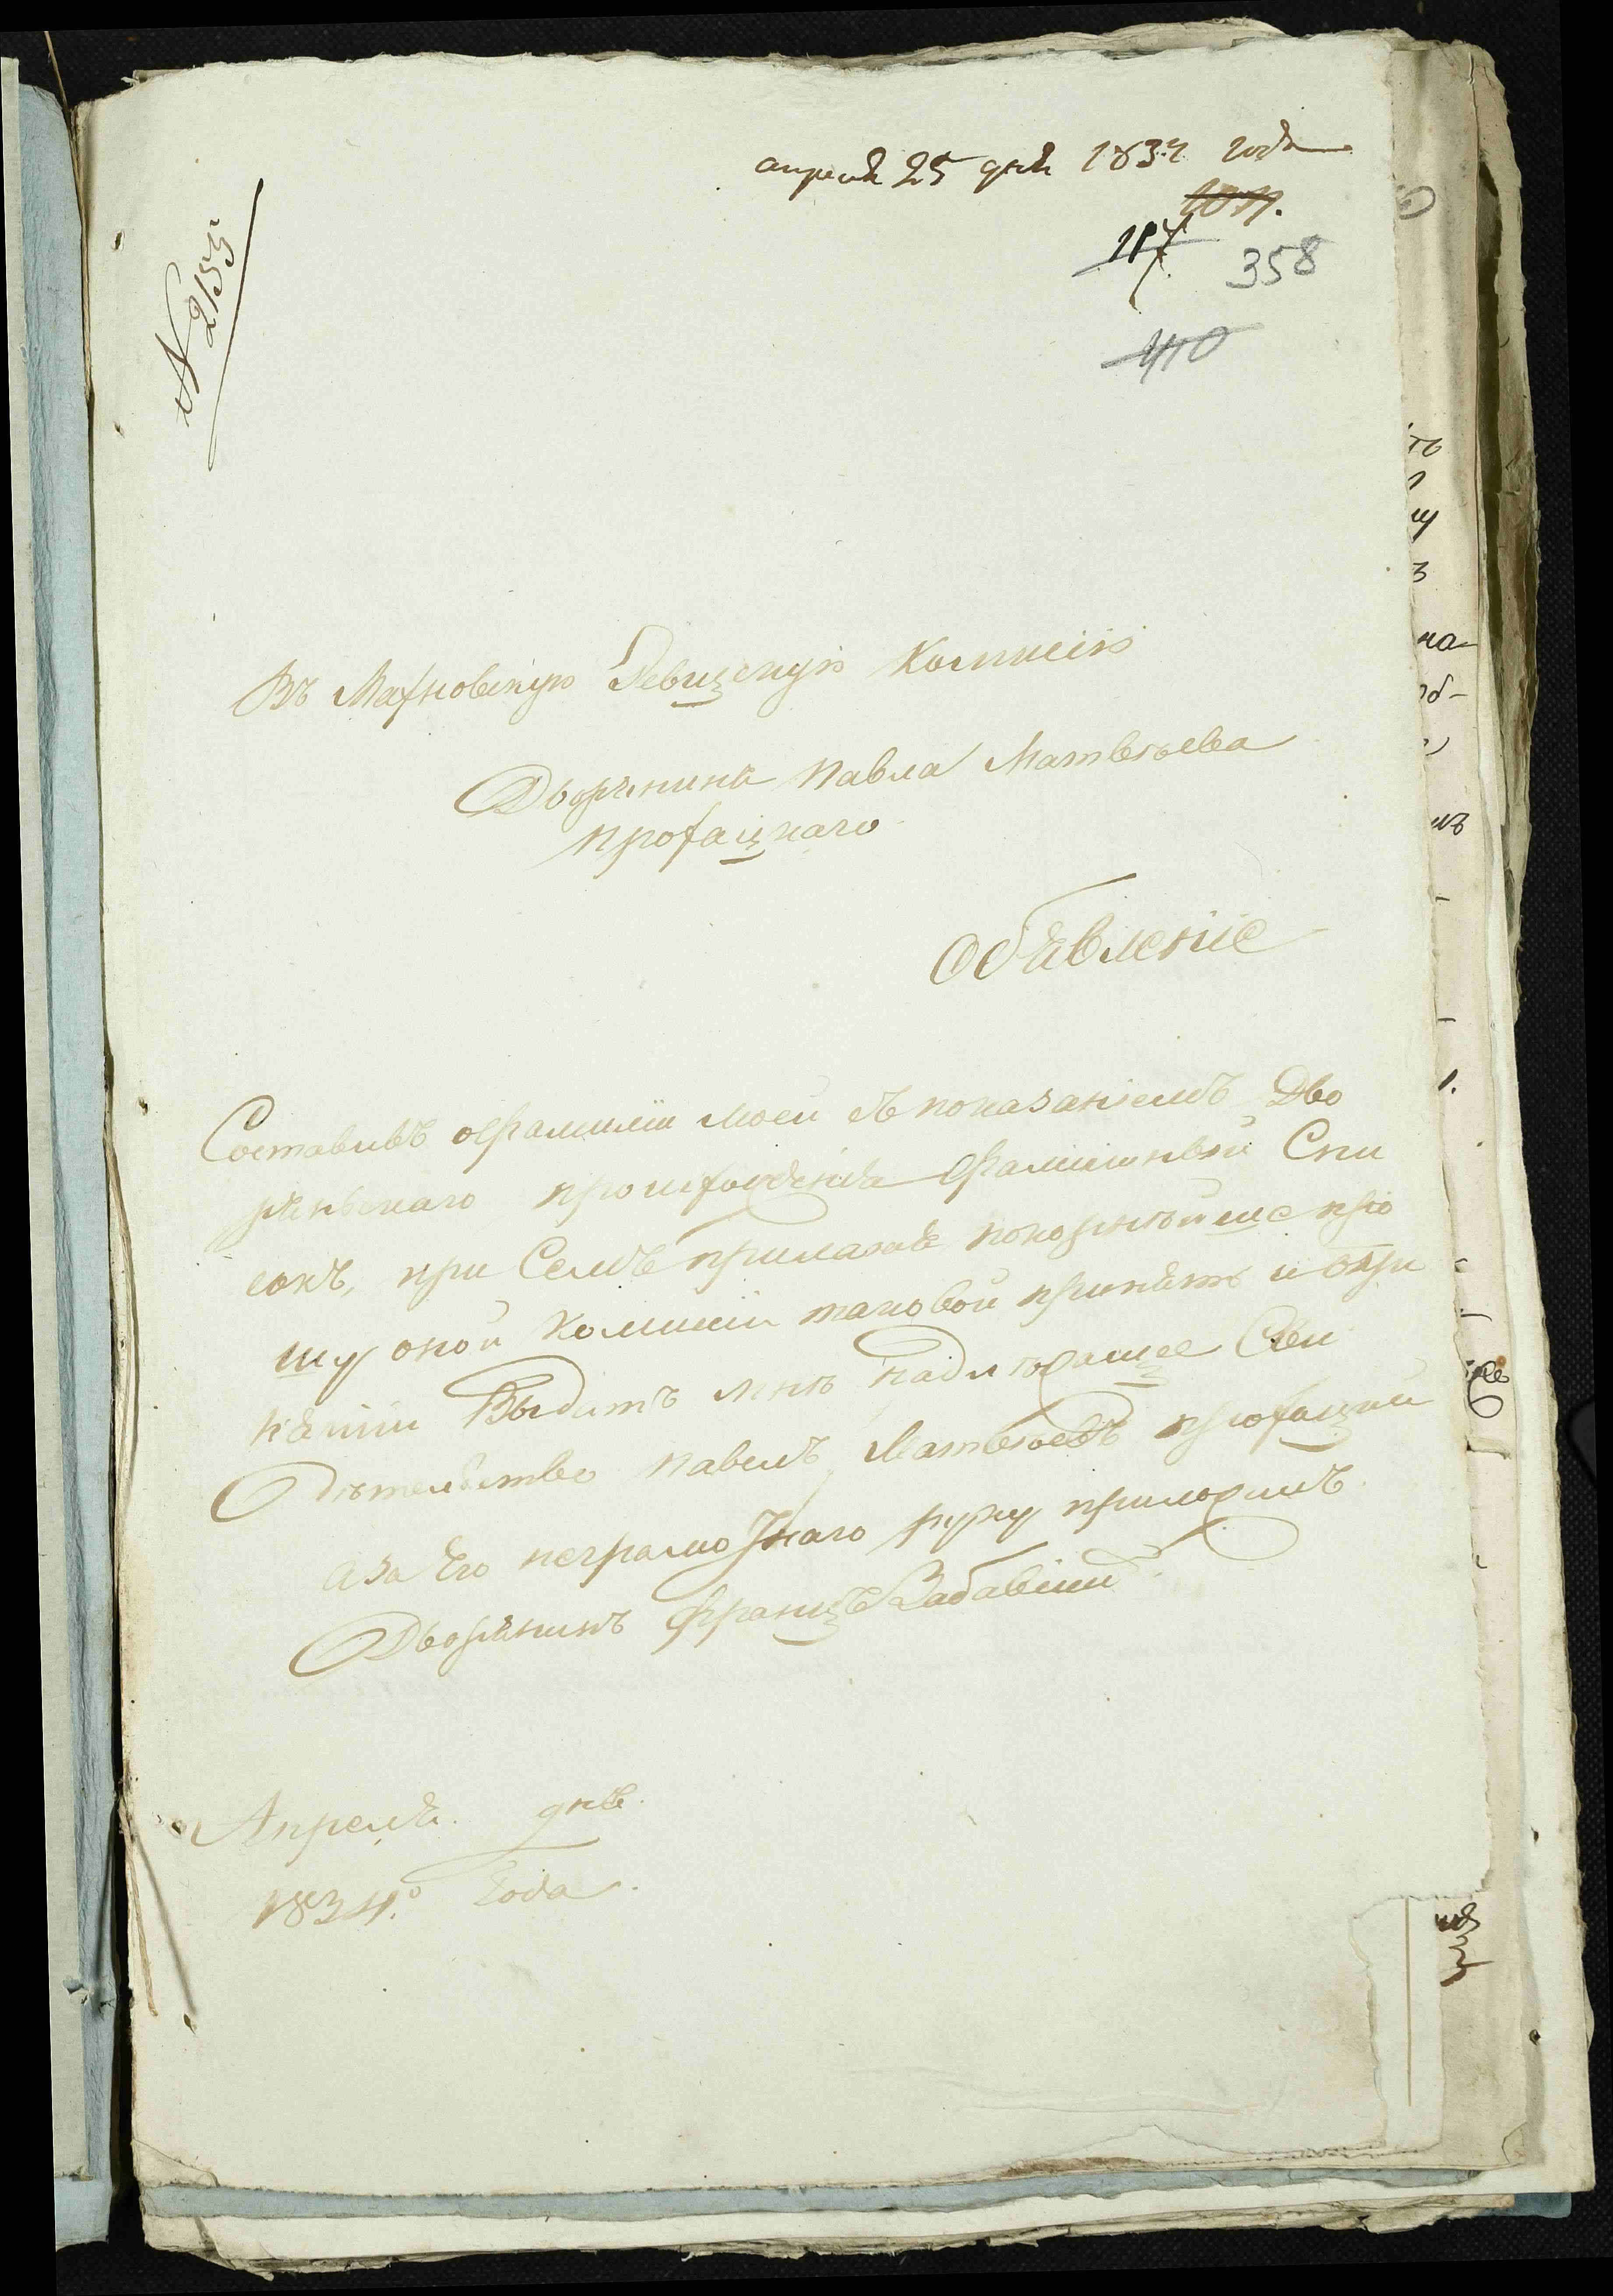 апреля 25 дня 1834 года
1071.
117
358
410
N 2155
Въ Махновскую Ревизскую Комисію
Дворянина Павла Матвѣева
Прохацкаго
Объявленіе
Составивъ о фамиліи моей съ показаніемъ Дво
рянскаго происхожденія фамилійный Спи
сокъ, при Семъ прилагая покорнѣйше про
шу оной Комисіи таковой принять и о при
нятіи Выдать мнѣ надлежащее Сви
дѣтельство Павелъ Матвѣевъ Прохацкій
а за Его неграмотнаго руку приложилъ
Дворянинъ Францъ Забавскій
Апреля дня
1834.º Года